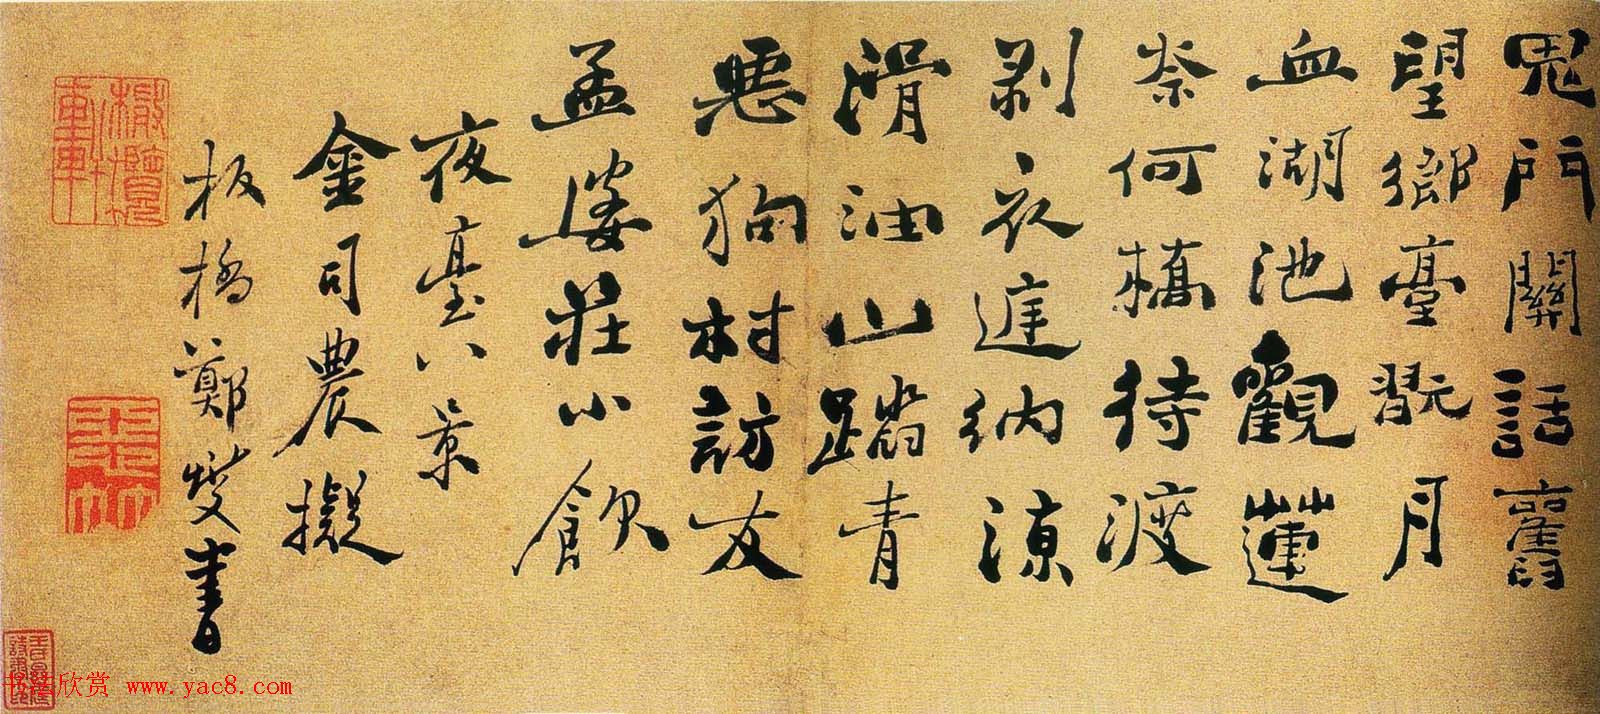 鬼門關話舊
望鄉臺翫月
血湖池觀蓮
奈何橋待渡
剥衣進納涼
滑油山踏青
惡狗村訪友
孟婆莊小飲
夜臺八景
金司農擬
板橋鄭燮書
書法欣赏 www.yac8.com